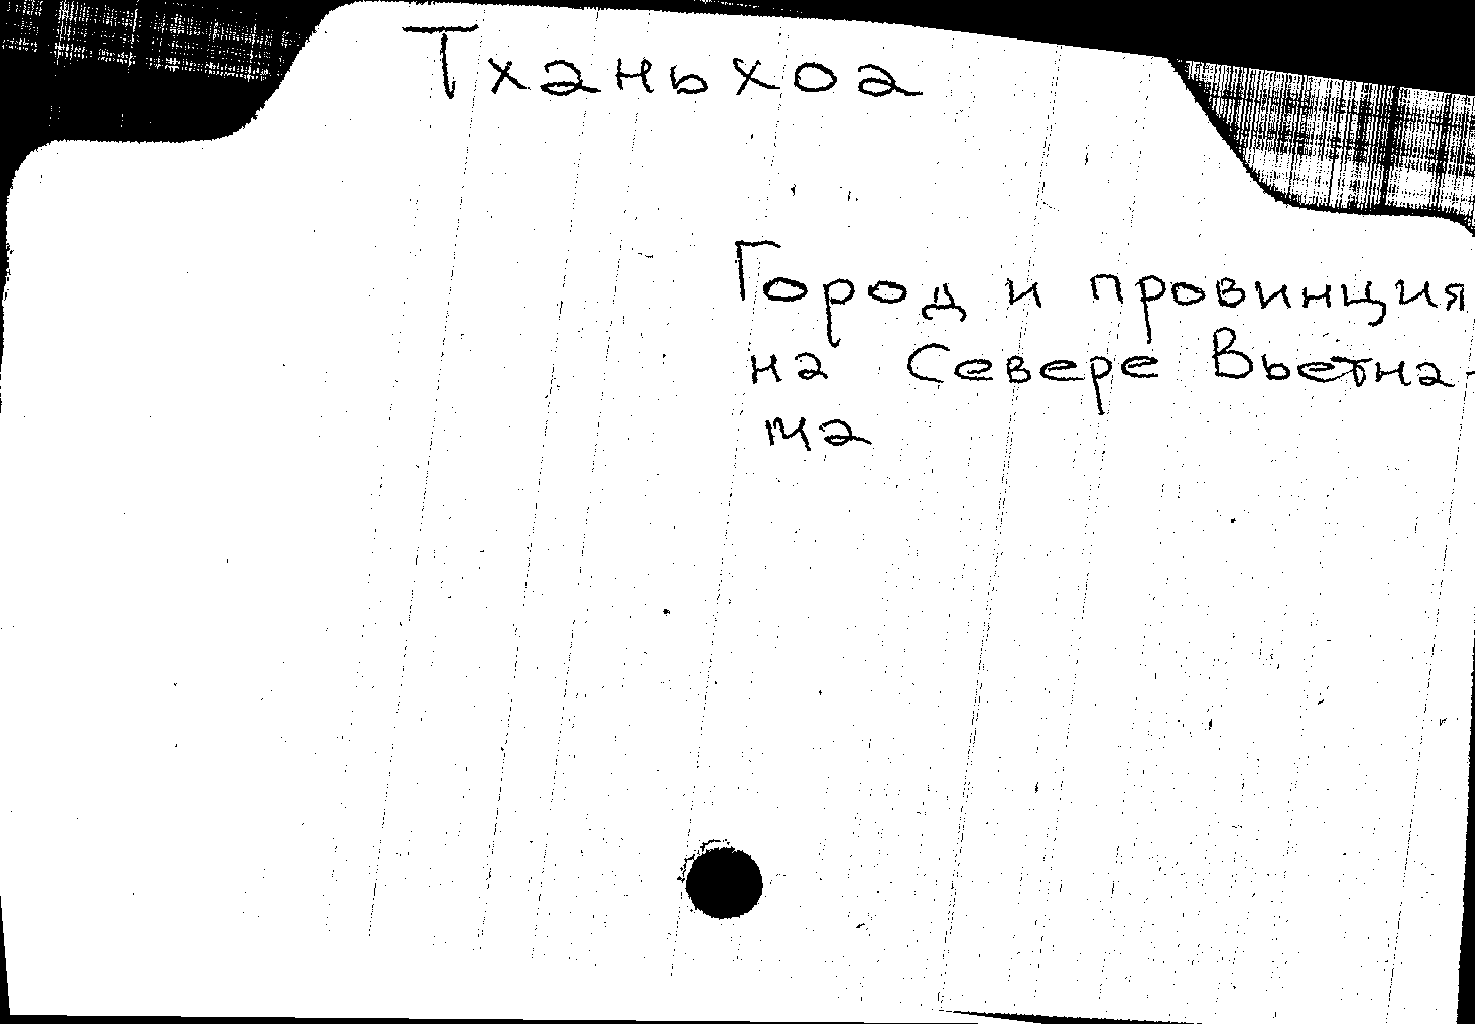 Тханьхоа
Город и провинция
на Севере Вьетна-
ма